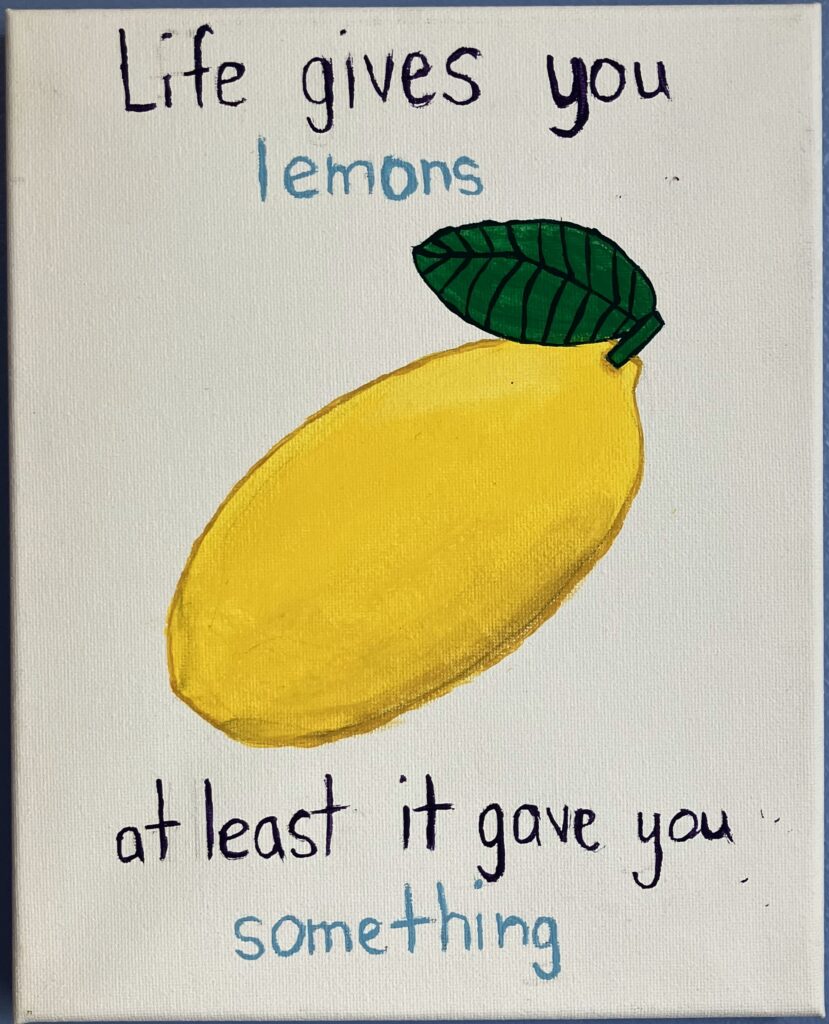 Life gives you
lemons
at least it gave you
something